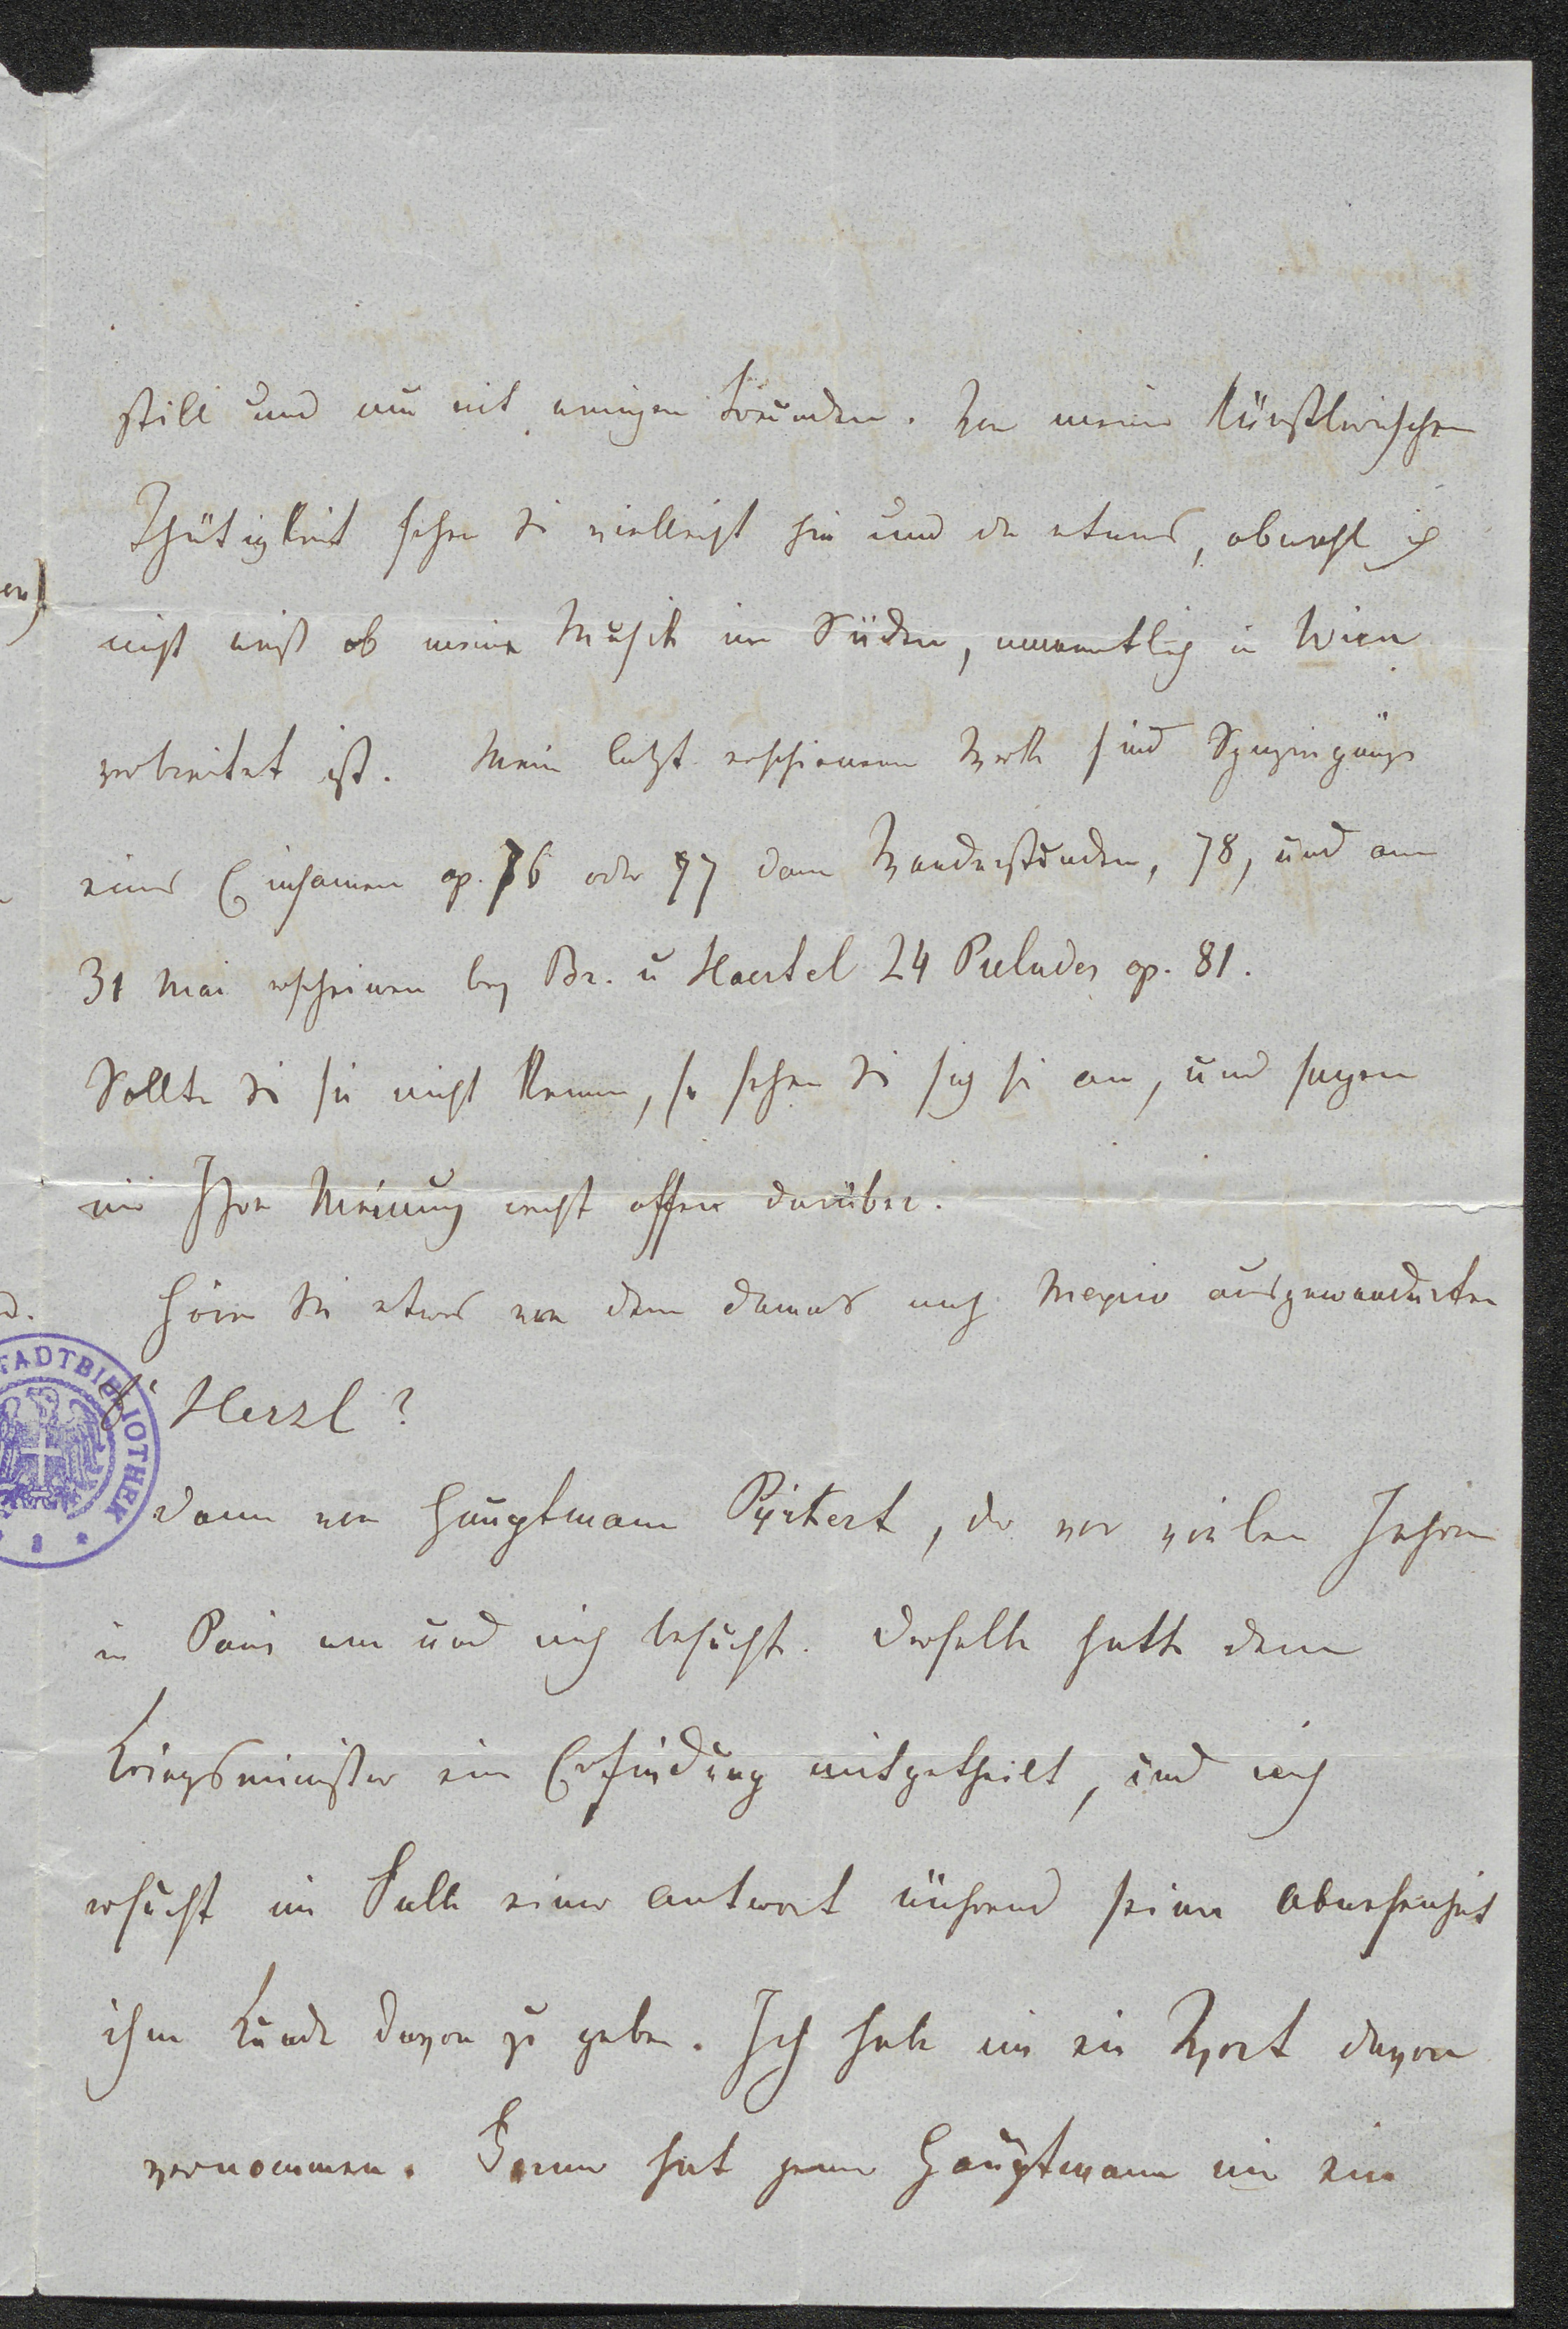 still und nur mit wenigen Freunden. Von meiner künstlerischen
Thätigkeit sehen Sie vielleicht hie und da etwas, obwohl ich
nicht weiß ob meine Musik im Süden, namentlich in Wien
verbreitet ist. Mein letzt erschienenen Werke sind Spaziergänge
eines Einsamen op. 76 oder 77 dann Wanderstunden, 78, und am
31 Mai erscheinen bey Br. u Haertel 24 Preludes op. 81.
Sollten Sie sie nicht kennen, so sehen Sie sich sie an, und sagen
mir Ihre Meinung recht offen darüber.
Hören Sie etwas von dem damals nach Mexico ausgewanderten
Dr Herzl?
dann von Hauptmann Pyrkert, der vor vielen Jahren
in Paris war und mich besuchte. Derselbe hatte dem
Kriegsminister eine Erfindung mitgetheilt, und mich
ersucht im Falle einer Antwort während seiner Abwesenheit
ihm Kunde davon zu geben. Ich habe nie ein Wort davon
vernommen. Ferner hat jener Hauptmann mir ein
STADTBIBLIOTHEK